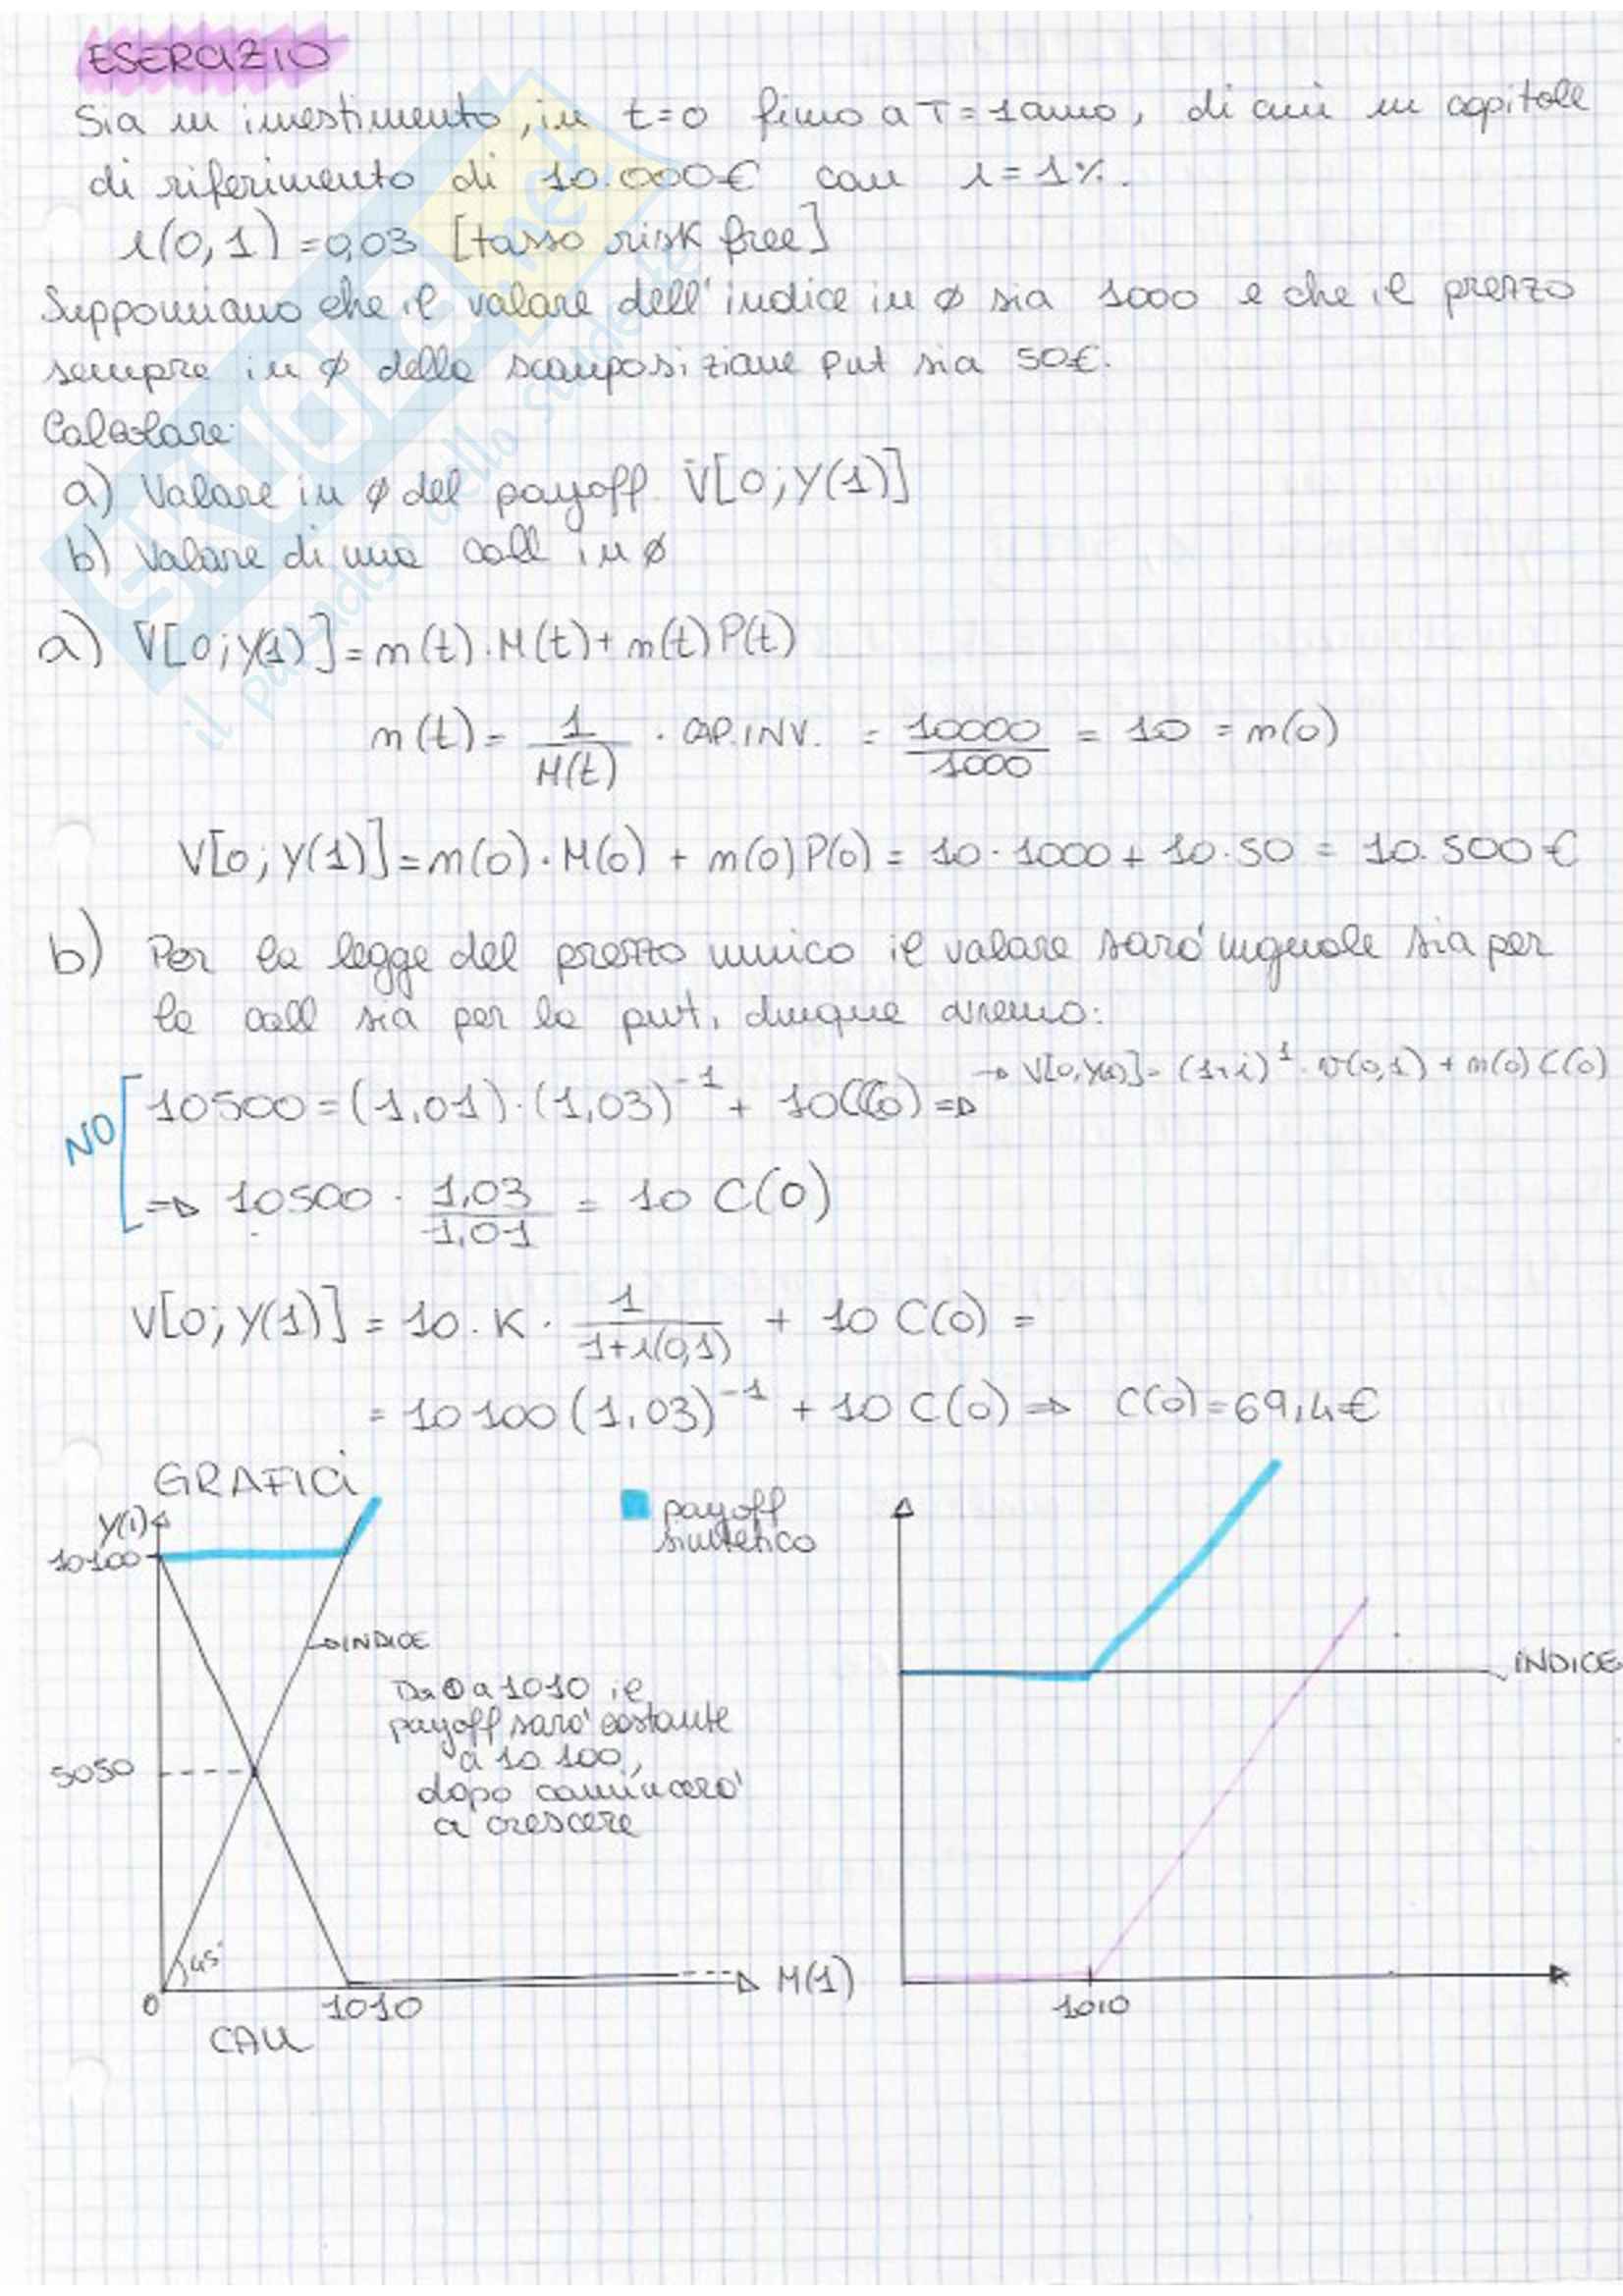 ESERCIZIO
Sia un investimento, in t=0 fino a T=1 anno, di cui un capitale
di riferimento di 10.000€ con i=1%.
i(0,1)=0,03 [tasso risk free]
Supponiamo che il valore dell'indice in ϕ sia 1000 e che il prezzo
sempre in ϕ della scomposizione put sia 50€.
Calcolare:
a) Valore in ϕ del payoff V[0;Y(1)]
b) Valore di una call in ϕ
a) V[0;Y(1)] = n(t)·M(t)+n(t)P(t)
n(t) = 1/M(t) · CAP.INV. = 10000/1000 = 10 = n(0)
V[0;Y(1)] = n(0)·M(0) + n(0)P(0) = 10·1000+10·50 = 10.500€
b) Per la legge del prezzo unico il valore sarà uguale sia per
la call sia per la put, dunque avremo:
→ V[0,Y(1)] = (1+i)^1 · v(0,1) + n(0)C(0)
NO
10500=(1,01)·(1,03)^-1 + 10C(0) ⇒
⇒ 10500 · 1,03/1,01 = 10 C(0)
V[0;Y(1)] = 10·K· 1/1+i(0,1) + 10 C(0) =
= 10100(1,03)^-1 + 10 C(0) ⇒ C(0)=69,4€
GRAFICI
payoff
sintetico
Y(1)
10100
→INDICE
INDICE
Da 0 a 1010 il
payoff sarà costante
a 10100,
dopo comincerà
a crescere
5050
45°
0
1010
M(1)
1010
CALL
skuola.net
il paradiso dello studente